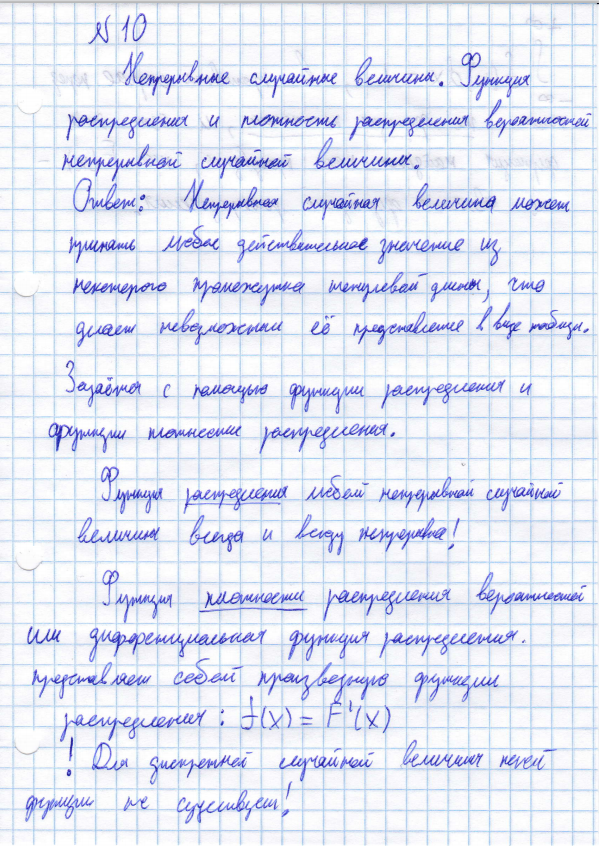 № 10
Непрерывные случайные величины. Функция
распределения и плотность распределения вероятностей
непрерывной случайной величины.
Ответ: Непрерывная случайная величина может
принять любое действительное значение из
некоторого промежутка ненулевой длины, что
делает невозможным её представление в виде таблицы.
Задаётся с помощью функции распределения и
функции плотности распределения.
Функция распределения любой непрерывной случайной
величины всегда и всюду непрерывна!
Функция плотности распределения вероятностей
или дифференциальная функция распределения.
представляет собой производную функции
распределения: f(x) = F'(x)
! Для дискретной случайной величины такой
функции не существует!